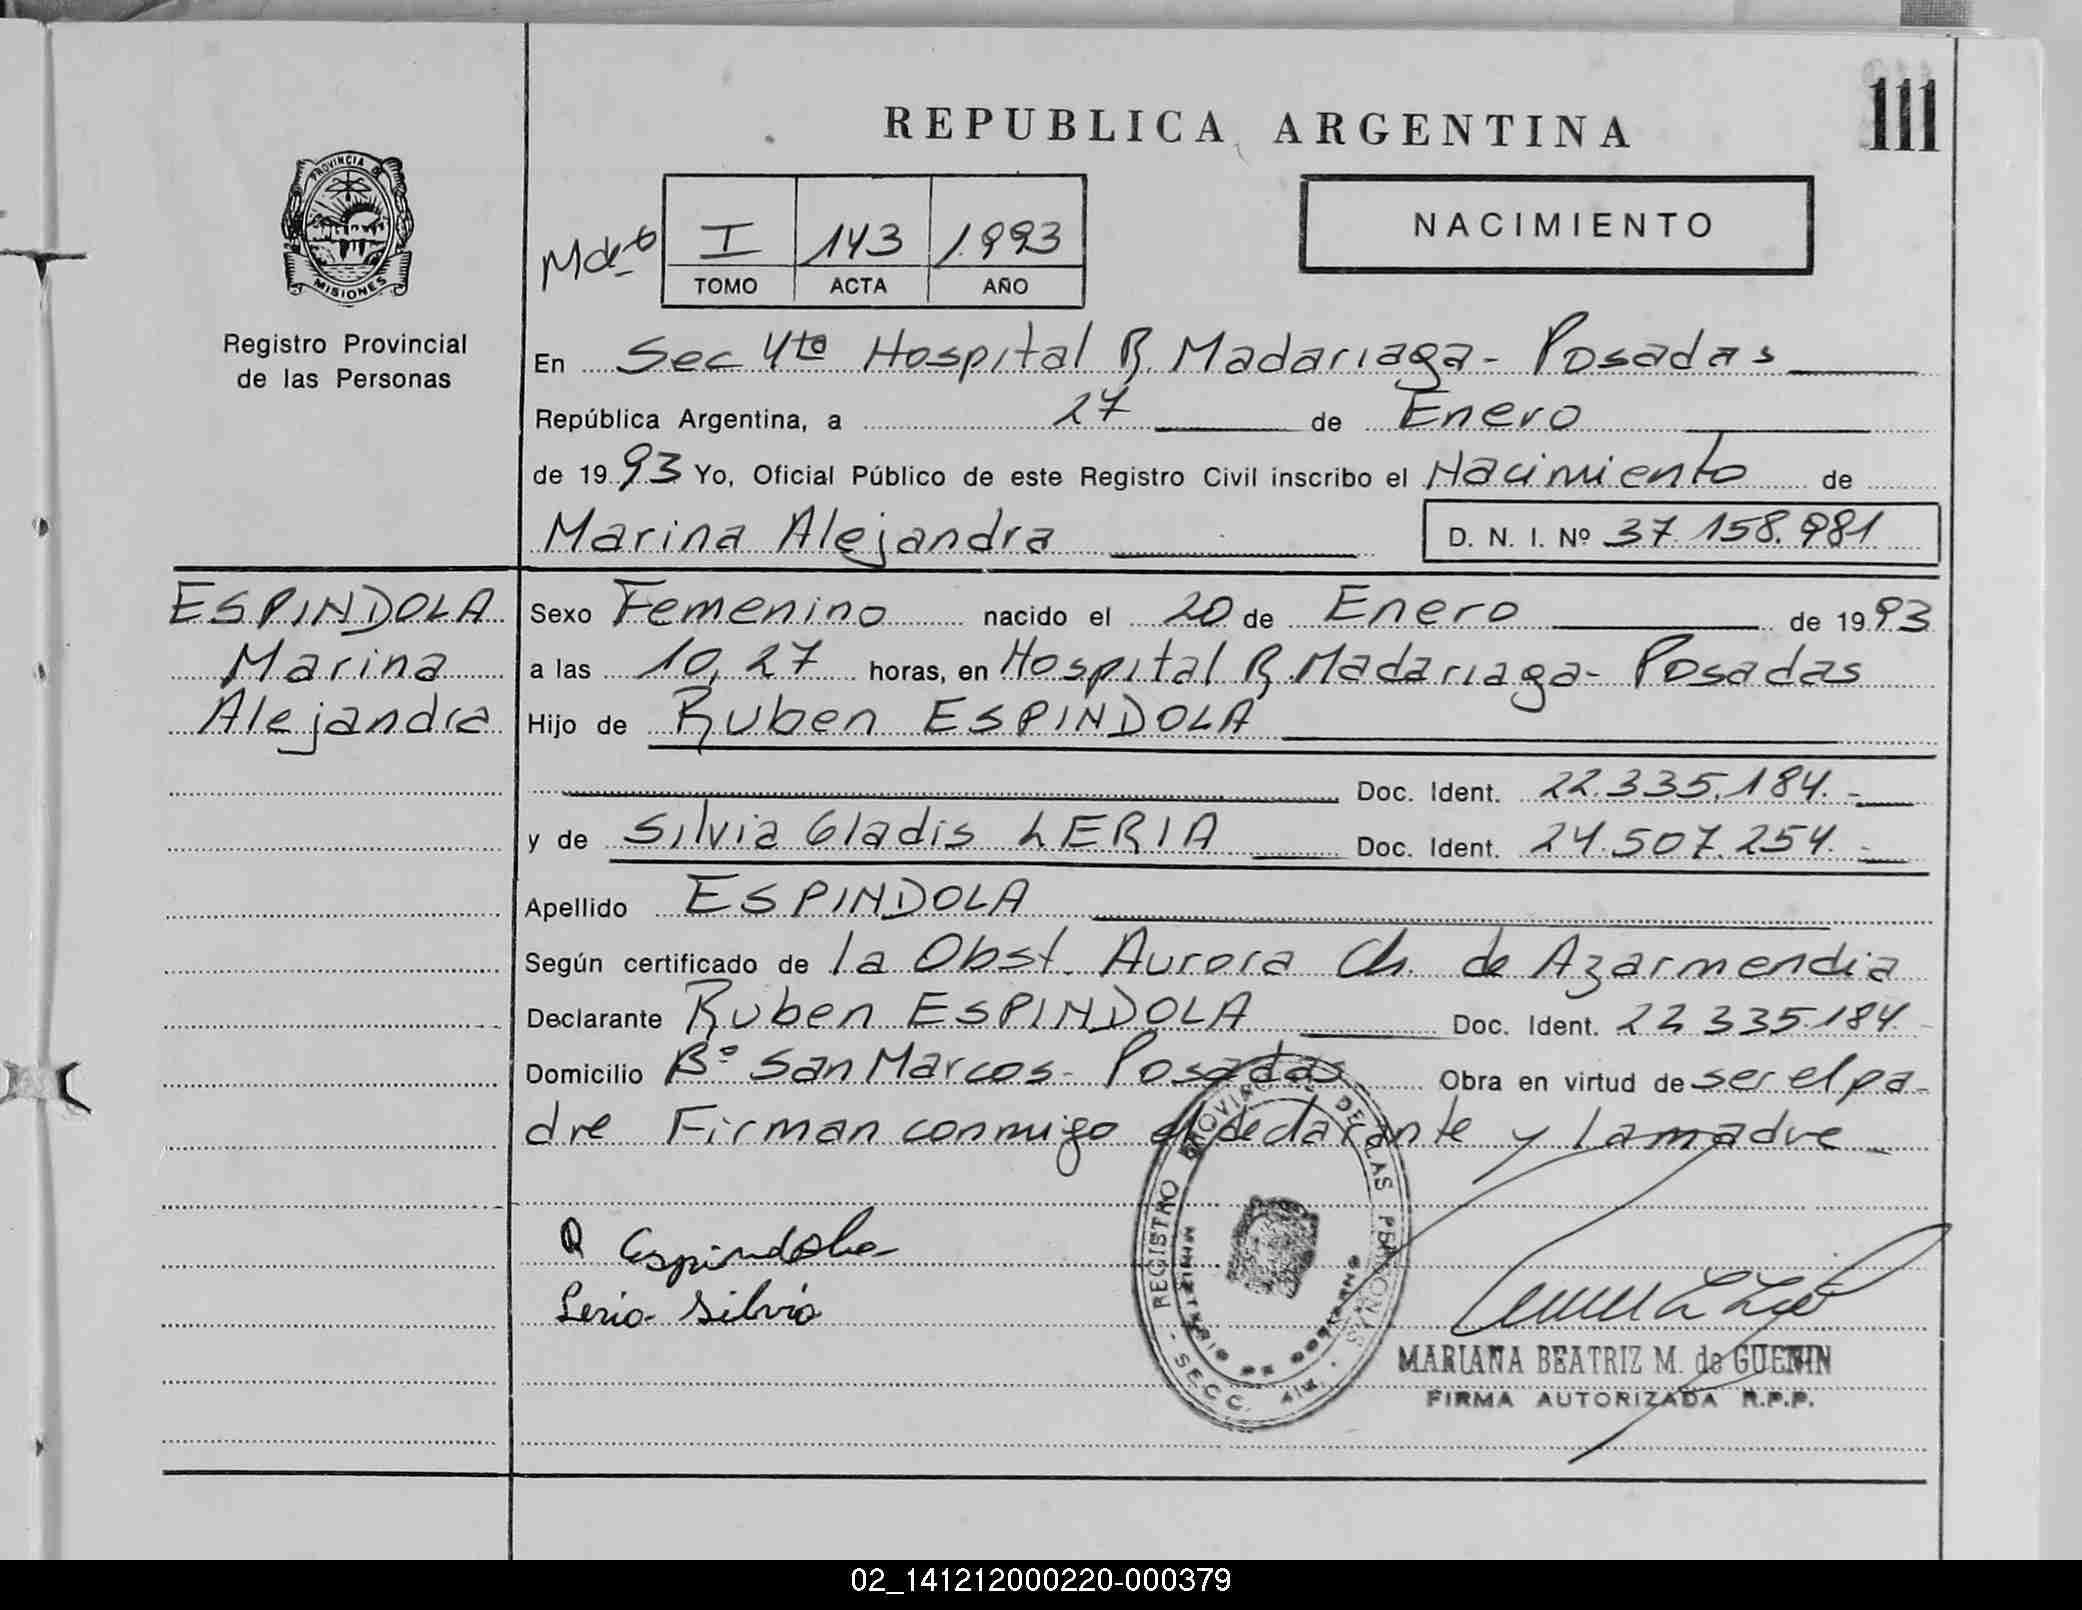 111
REPUBLICA ARGENTINA
PROVINCIA DE
MISIONES
Registro Provincial
de las Personas
I 143 1993
TOMO ACTA AÑO
NACIMIENTO
En Sec 4ta Hospital R. Madariaga - Posadas
República Argentina, a 27 de Enero
de 1993 Yo, Oficial Público de este Registro Civil inscribo el Nacimiento de
Marina Alejandra D. N. I. Nº 37.158.981
ESPINDOLA
Marina
Alejandra
Sexo Femenino nacido el 20 de Enero de 1993
a las 10,27 horas, en Hospital R. Madariaga - Posadas
Hijo de Ruben ESPINDOLA
Doc. Ident. 22.335.184.-
y de Silvia Gladis LERIA Doc. Ident. 24.507.254.-
Apellido ESPINDOLA
Según certificado de la Obst. Aurora Ch. de Azarmendia
Declarante Ruben ESPINDOLA Doc. Ident. 22.335.184.-
Domicilio Bº San Marcos - Posadas Obra en virtud de ser el pa-
dre Firman conmigo el declarante y la madre
R Espindola
Leria Silvia
REGISTRO PROVINCIAL DE LAS PERSONAS
MINISTERIO DE GOBIERNO
SECC.
MARIANA BEATRIZ M. de GUENIN
FIRMA AUTORIZADA R.P.P.
02_141212000220-000379